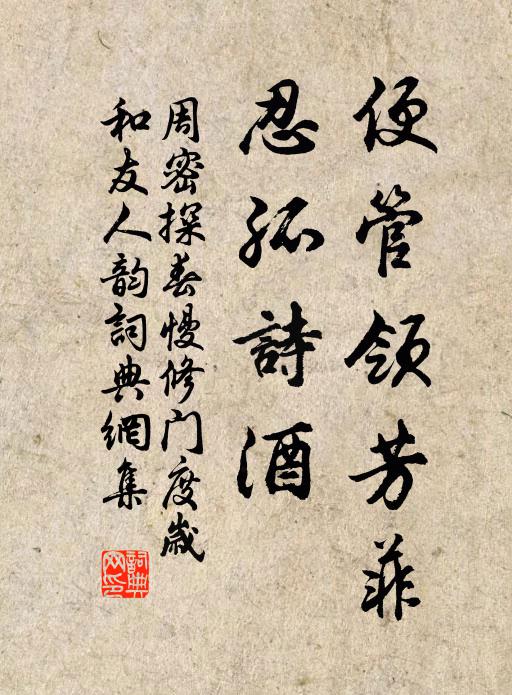 便管領芳菲
忍孤詩酒
周密探春慢修门度歲
和友人韵詞典網集
詞典網印